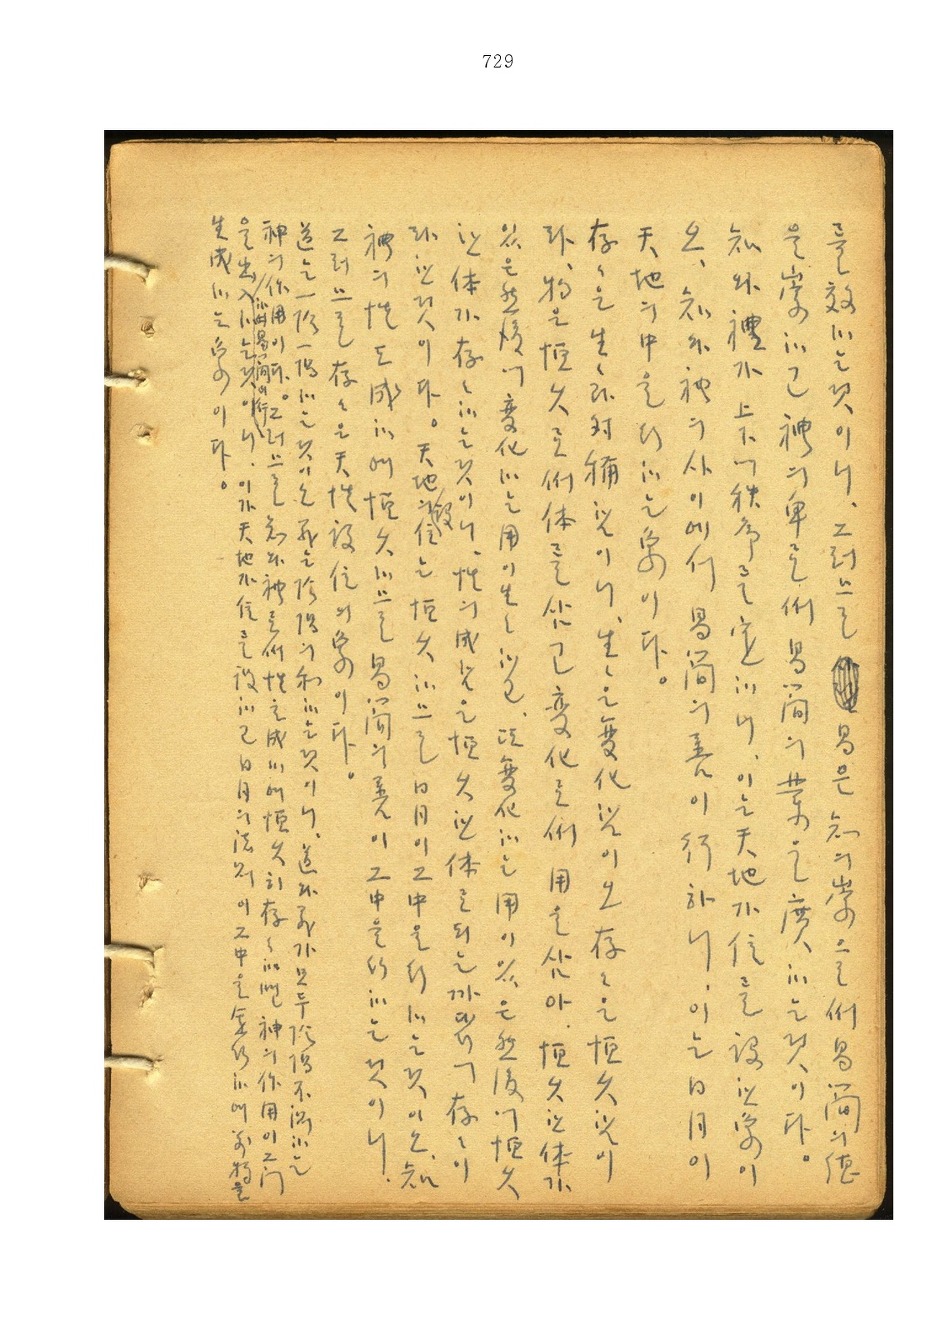 729
를 效하는것이니, 그러므로 易은 知의崇으로써 易簡의德
을崇하고 禮의卑로써 易簡의業을廣하는것이다。
知와禮가 上下에秩序를定하니, 이는天地가位를設한象이
오, 知와禮의사이에서 易簡의善이行하니, 이는日月이
天地의中을行하는象이다。
存存은生生과對稱한것이니, 生生은變化한것이오存存은恒久한것이
라, 物은恒久로써體를삼고變化로써用을삼아, 恒久한體가
있은然後에變化하는用이生하고, 變化하는用이있은然後에恒久
한體가存存하는것이니, 性의成한것은恒久한體를되는까닭에存存이
라한것이다。天地의設位는恒久하므로日月이그中을行하는것이오, 知
禮의性도成하며恒久하므로易簡의善이그中을行하는것이니,
그러므로存存은天地設位의象이다。
道는一陰一陽하는것이오義는陰陽의和하는것이니, 道와義가모두陰陽不測하는
神의作用이다。그러므로知와禮로써性을成하며恒久히存存하면神의作用이그門
을出入하는것이니, 이가天地가位를設하고日月의法則이그中을流行하며萬物을
生成하는象이다。